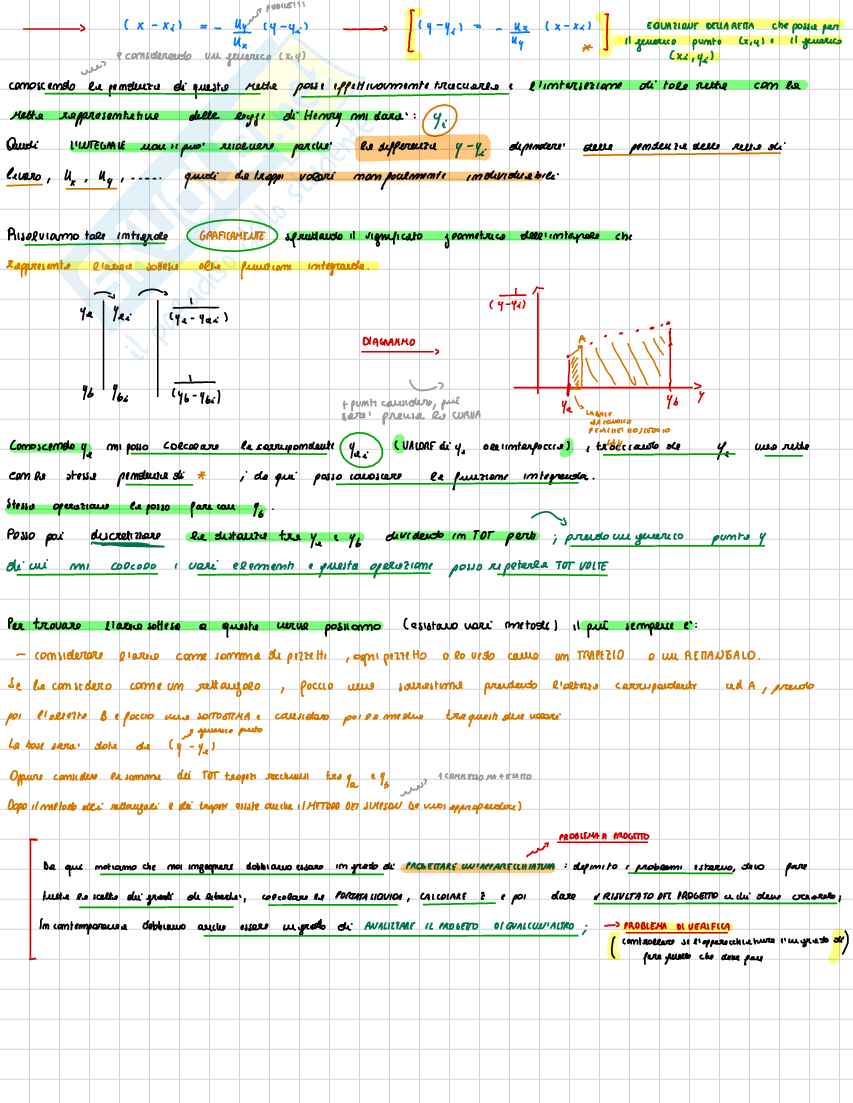 PRODOTTI
(x - xi) = - Uy/Ux (y - yi) → [(y - yi) = - Ux/Uy (x - xi)] * EQUAZIONE DELLA RETTA che passa per
il generico punto (x,y) e il generico
(xi, yi)
e considerando un generico (x,y)
conoscendo la pendenza di questa retta posso effettivamente tracciarla e l'intersezione di tale retta con la
retta rappresentativa della legge di Henry mi darà: yi
Quindi L'INTEGRALE non si può risolvere perché la differenza y-yi dipenderà dalla pendenza della retta di
lavoro, Ux, Uy, ..... quindi da troppi valori non facilmente individuabili.
Risolviamo tale integrale GRAFICAMENTE sfruttando il significato geometrico dell'integrale che
rappresenta l'area sottesa alla funzione integranda.
ya yai 1/(ya-yai)
yb ybi 1/(yb-ybi)
DIAGRAMMO →
1/(y-yi)
A
ya yb y
+ punti considero, più
sarà precisa la CURVA
Conoscendo ya mi posso calcolare la corrispondente yai (VALORE di ya all'interfaccia), tracciando da ya una retta
con la stessa pendenza di * ; da qui posso conoscere la funzione integranda.
Stessa operazione la posso fare con yb.
Posso poi discretizzare la distanza tra ya e yb dividendo in TOT parti ; prendo un generico punto y
di cui mi calcolo i vari elementi e questa operazione posso ripeterla TOT VOLTE
Per trovare l'area sottesa a questa curva possiamo (esistono vari metodi) il più semplice è:
- considerare l'area come somma di pezzetti, ogni pezzetto o lo vedo come un TRAPEZIO o un RETTANGOLO.
Se la considero come un rettangolo, faccio una sovrastima prendendo l'altezza corrispondente ad A, prendo
poi l'altezza B e faccio una SOTTOSTIMA e considero poi la media tra questi due valori
generico punto
La base sarà data da (y - ya)
Oppure considero la somma dei TOT trapezi racchiusi tra ya e yb
+ CORRETTO MA + LUNGO
Dopo il metodo dei rettangoli e dei trapezi esiste anche il METODO DEI SIMPSON (se vuoi approfondire)
PROBLEMA DI PROGETTO
Da qui notiamo che noi ingegneri dobbiamo essere in grado di PROGETTARE UN'APPARECCHIATURA : definito i problemi esterni, devo fare
tutta la scelta dei gradi di libertà, calcolare la PORTATA LIQUIDA, CALCOLARE Z e poi dare il RISULTATO DEL PROGETTO a chi deve crearlo;
In contemporanea dobbiamo anche essere in grado di ANALIZZARE IL PROGETTO DI QUALCUN'ALTRO ; → PROBLEMA DI VERIFICA
(controllare se l'apparecchiatura è in grado di
fare quello che deve fare)